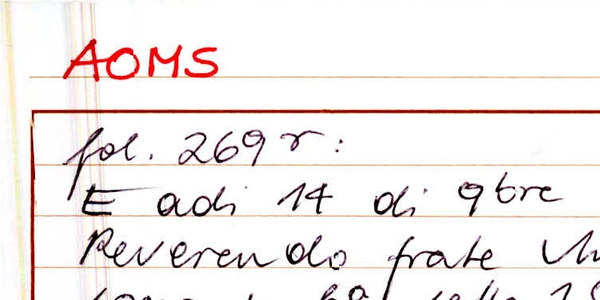 AOMS
fol. 269 r:
E adi 14 di 9bre
Reverendo frate